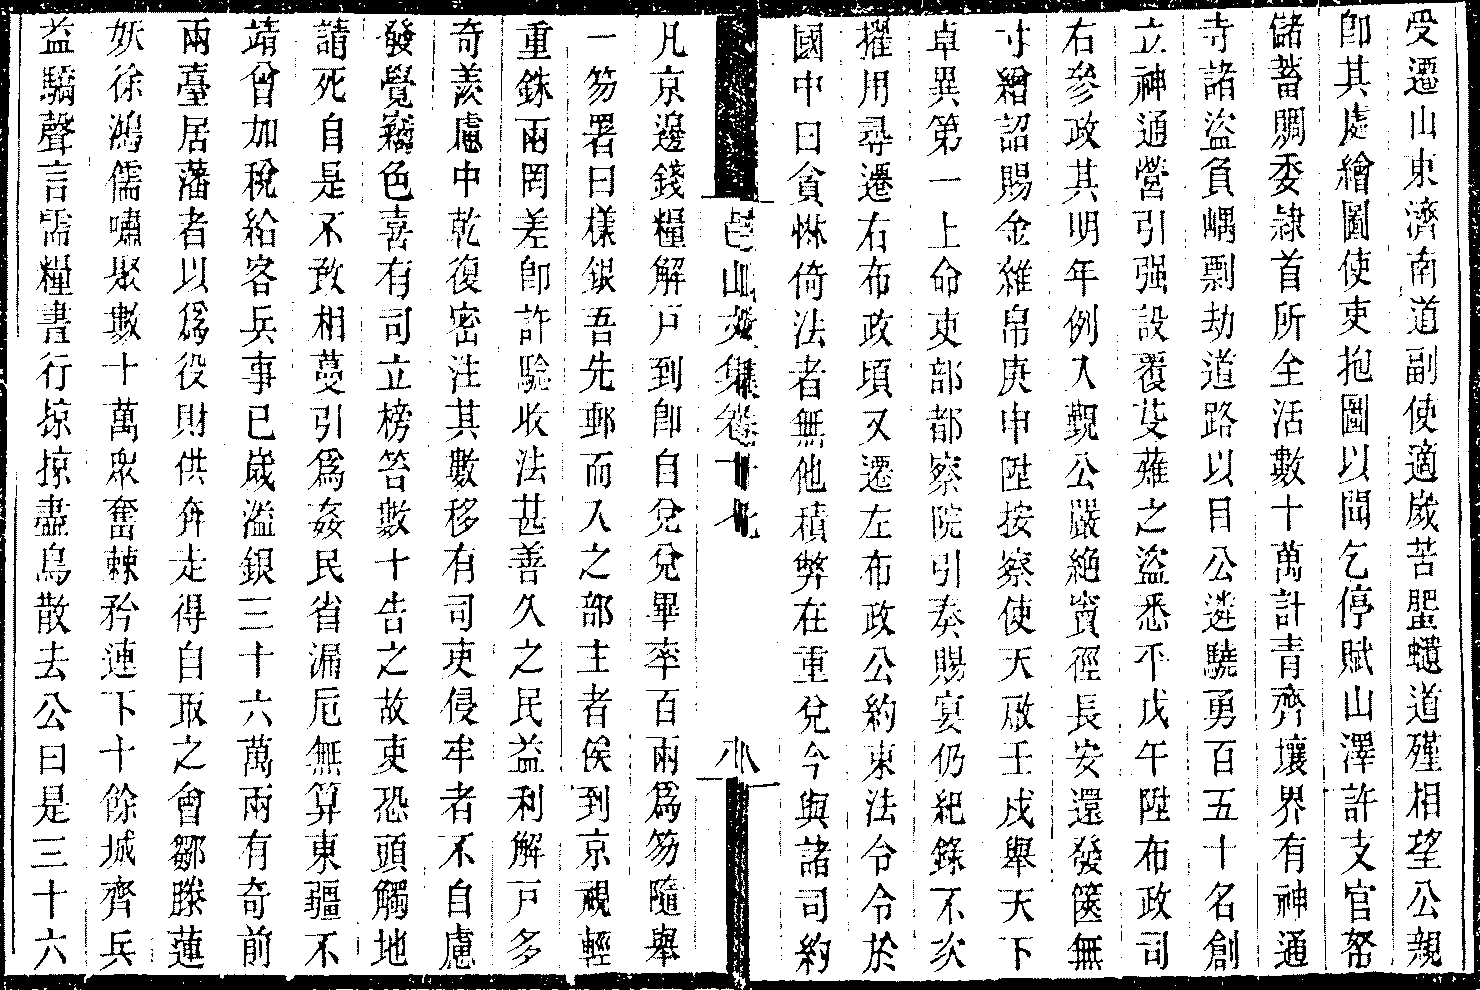 受遷山東濟南道副使適歲苦䘇蝗道殣相望公親
卽其處繪圖使吏抱圖以聞乞停賦山澤許支官帑
儲蓄賙委隷首所全活數十萬計青齊壤界有神通
寺諸盜負嵎剽劫道路以目公遴驍勇百五十名創
立神通營引强設覆芟薙之盜悉平戊午陞布政司
右參政其明年例入覲公嚴絶竇徑長安還發篋無
寸繒詔賜金雜帛庚申陞按察使天啟壬戌舉天下
卓異第一上命吏部都察院引奏賜宴仍紀錄不次
擢用尋遷右布政頃又遷左布政公約束法令令於
國中曰貪惏倚法者無他積弊在重兌今與諸司約
山文集卷十九
八
凡京邊錢糧解戸到卽自兌兌畢率百兩爲笏隨舉
一笏署曰樣銀吾先郵而入之部主者俟到京視輕
重銖兩罔差卽許驗收法甚善久之民益利解戸多
奇羨慮中乾復密注其數移有司吏侵牟者不自慮
發覺竊色喜有司立榜笞數十告之故吏恐頭觸地
請死自是不敢相蔓引爲姦民省漏卮無算東疆不
靖曾加稅給客兵事已歲溢銀三十六萬兩有奇前
兩臺居藩者以爲役財供奔走得自取之會鄒滕蓮
妖徐鴻儒嘯聚數十萬眾奮棘矜連下十餘城齊兵
益驕聲言需糧晝行掠掠盡鳥散去公曰是三十六